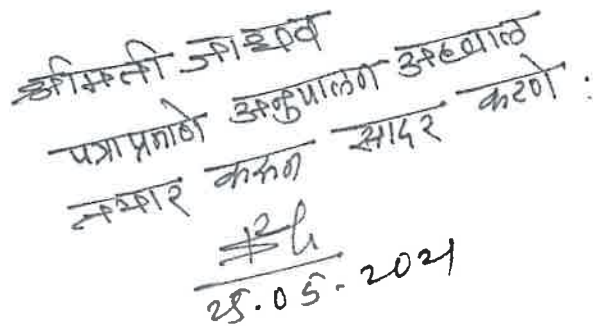 श्रीमती जाधव
पत्राप्रमाणे अनुपालन अहवाल
तयार करून सादर करणे :
25.05.2021